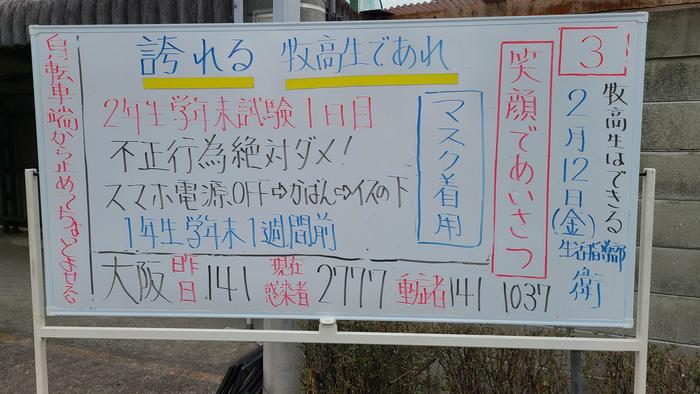 誇れる 牧高生であれ
3
牧高生はできる
2月12日(金)
生活指導部 衛
笑顔であいさつ
マスク着用
2年生学年末試験1日目
不正行為絶対ダメ!
スマホ電源OFF⇨かばん⇨イスの下
1年生学年末1週間前
自転車端から止め
大阪 昨日 141 現在感染者 2777 重症者 141 1037